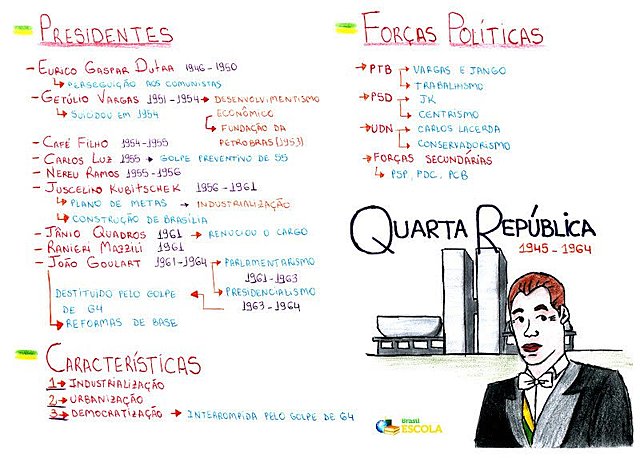 PRESIDENTES
- EURICO GASPAR DUTRA 1946-1950
↳ PERSEGUIÇÃO AOS COMUNISTAS
- GETÚLIO VARGAS 1951-1954 → DESENVOLVIMENTISMO ECONÔMICO
↳ SUICIDOU EM 1954
↳ FUNDAÇÃO DA PETROBRAS (1953)
- CAFÉ FILHO 1954-1955
- CARLOS LUZ 1955 → GOLPE PREVENTIVO DE 55
- NEREU RAMOS 1955-1956
- JUSCELINO KUBITSCHEK 1956-1961
↳ PLANO DE METAS → INDUSTRIALIZAÇÃO
↳ CONSTRUÇÃO DE BRASÍLIA
- JÂNIO QUADROS 1961 → RENUCIOU O CARGO
- RANIERI MAZZILI 1961
- JOÃO GOULART 1961-1964 → PARLAMENTARISMO
1961-1963
→ PRESIDENCIALISMO
1963-1964
DESTITUIDO PELO GOLPE
DE 64
→ REFORMAS DE BASE
CARACTERÍSTÍCAS
1 → INDUSTRIALIZAÇÃO
2 → URBANIZAÇÃO
3 → DEMOCRATIZAÇÃO → INTERROMPIDA PELO GOLPE DE 64
FORÇAS POLÍTICAS
→ PTB → VARGAS E JANGO
→ TRABALHISMO
→ PSD → JK
→ CENTRISMO
→ UDN → CARLOS LACERDA
→ CONSERVADORISMO
→ FORÇAS SECUNDÁRIAS
↳ PSP, PDC, PCB
QUARTA REPÚBLICA
1945-1964
Brasil
ESCOLA